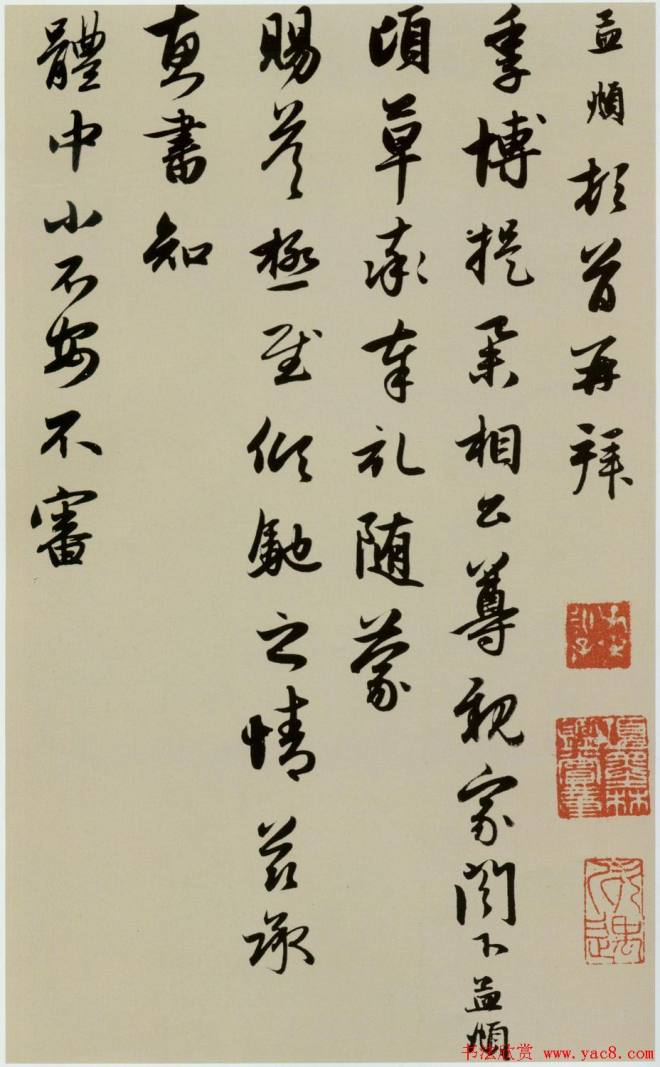 孟頫頓首再拜
季博提舉相公尊親家閣下孟頫
頃草率奉礼随蒙
賜答極至倾馳之情兹承
惠書知
體中小不安不審
书法欣赏 www.yac8.com